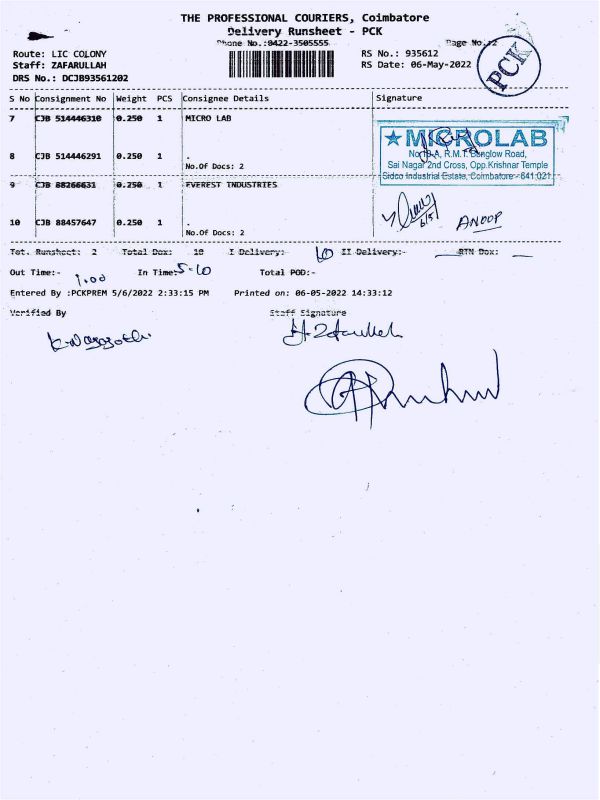 THE PROFESSIONAL COURIERS, Coimbatore
Delivery Runsheet - PCK
Phone No.:0422-3505555 Page No.:2
Route: LIC COLONY RS No.: 935612
Staff: ZAFARULLAH RS Date: 06-May-2022
DRS No.: DCJB93561202
PCK
S No Consignment No Weight PCS Consignee Details Signature
7 CJB 514446310 0.250 1 MICRO LAB
★MICROLAB
R.M.T. Banglow Road,
8 CJB 514446291 0.250 1 .
No.Of Docs: 2
Sai Nagar 2nd Cross, Opp.Krishnar Temple
Sidco Industrial Estate, Coimbatore - 641 021.
9 CJB 88266631 0.250 1 EVEREST INDUSTRIES
6/5
ANOOP
10 CJB 88457647 0.250 1 .
No.Of Docs: 2
Tot. Runsheet: 2 Total Dox: 10 I Delivery:- 10 II Delivery:- RTN Dox: -
Out Time:- 1.00 In Time:- 5-10 Total POD:-
Entered By :PCKPREM 5/6/2022 2:33:15 PM Printed on: 06-05-2022 14:33:12
Verified By Staff Signature